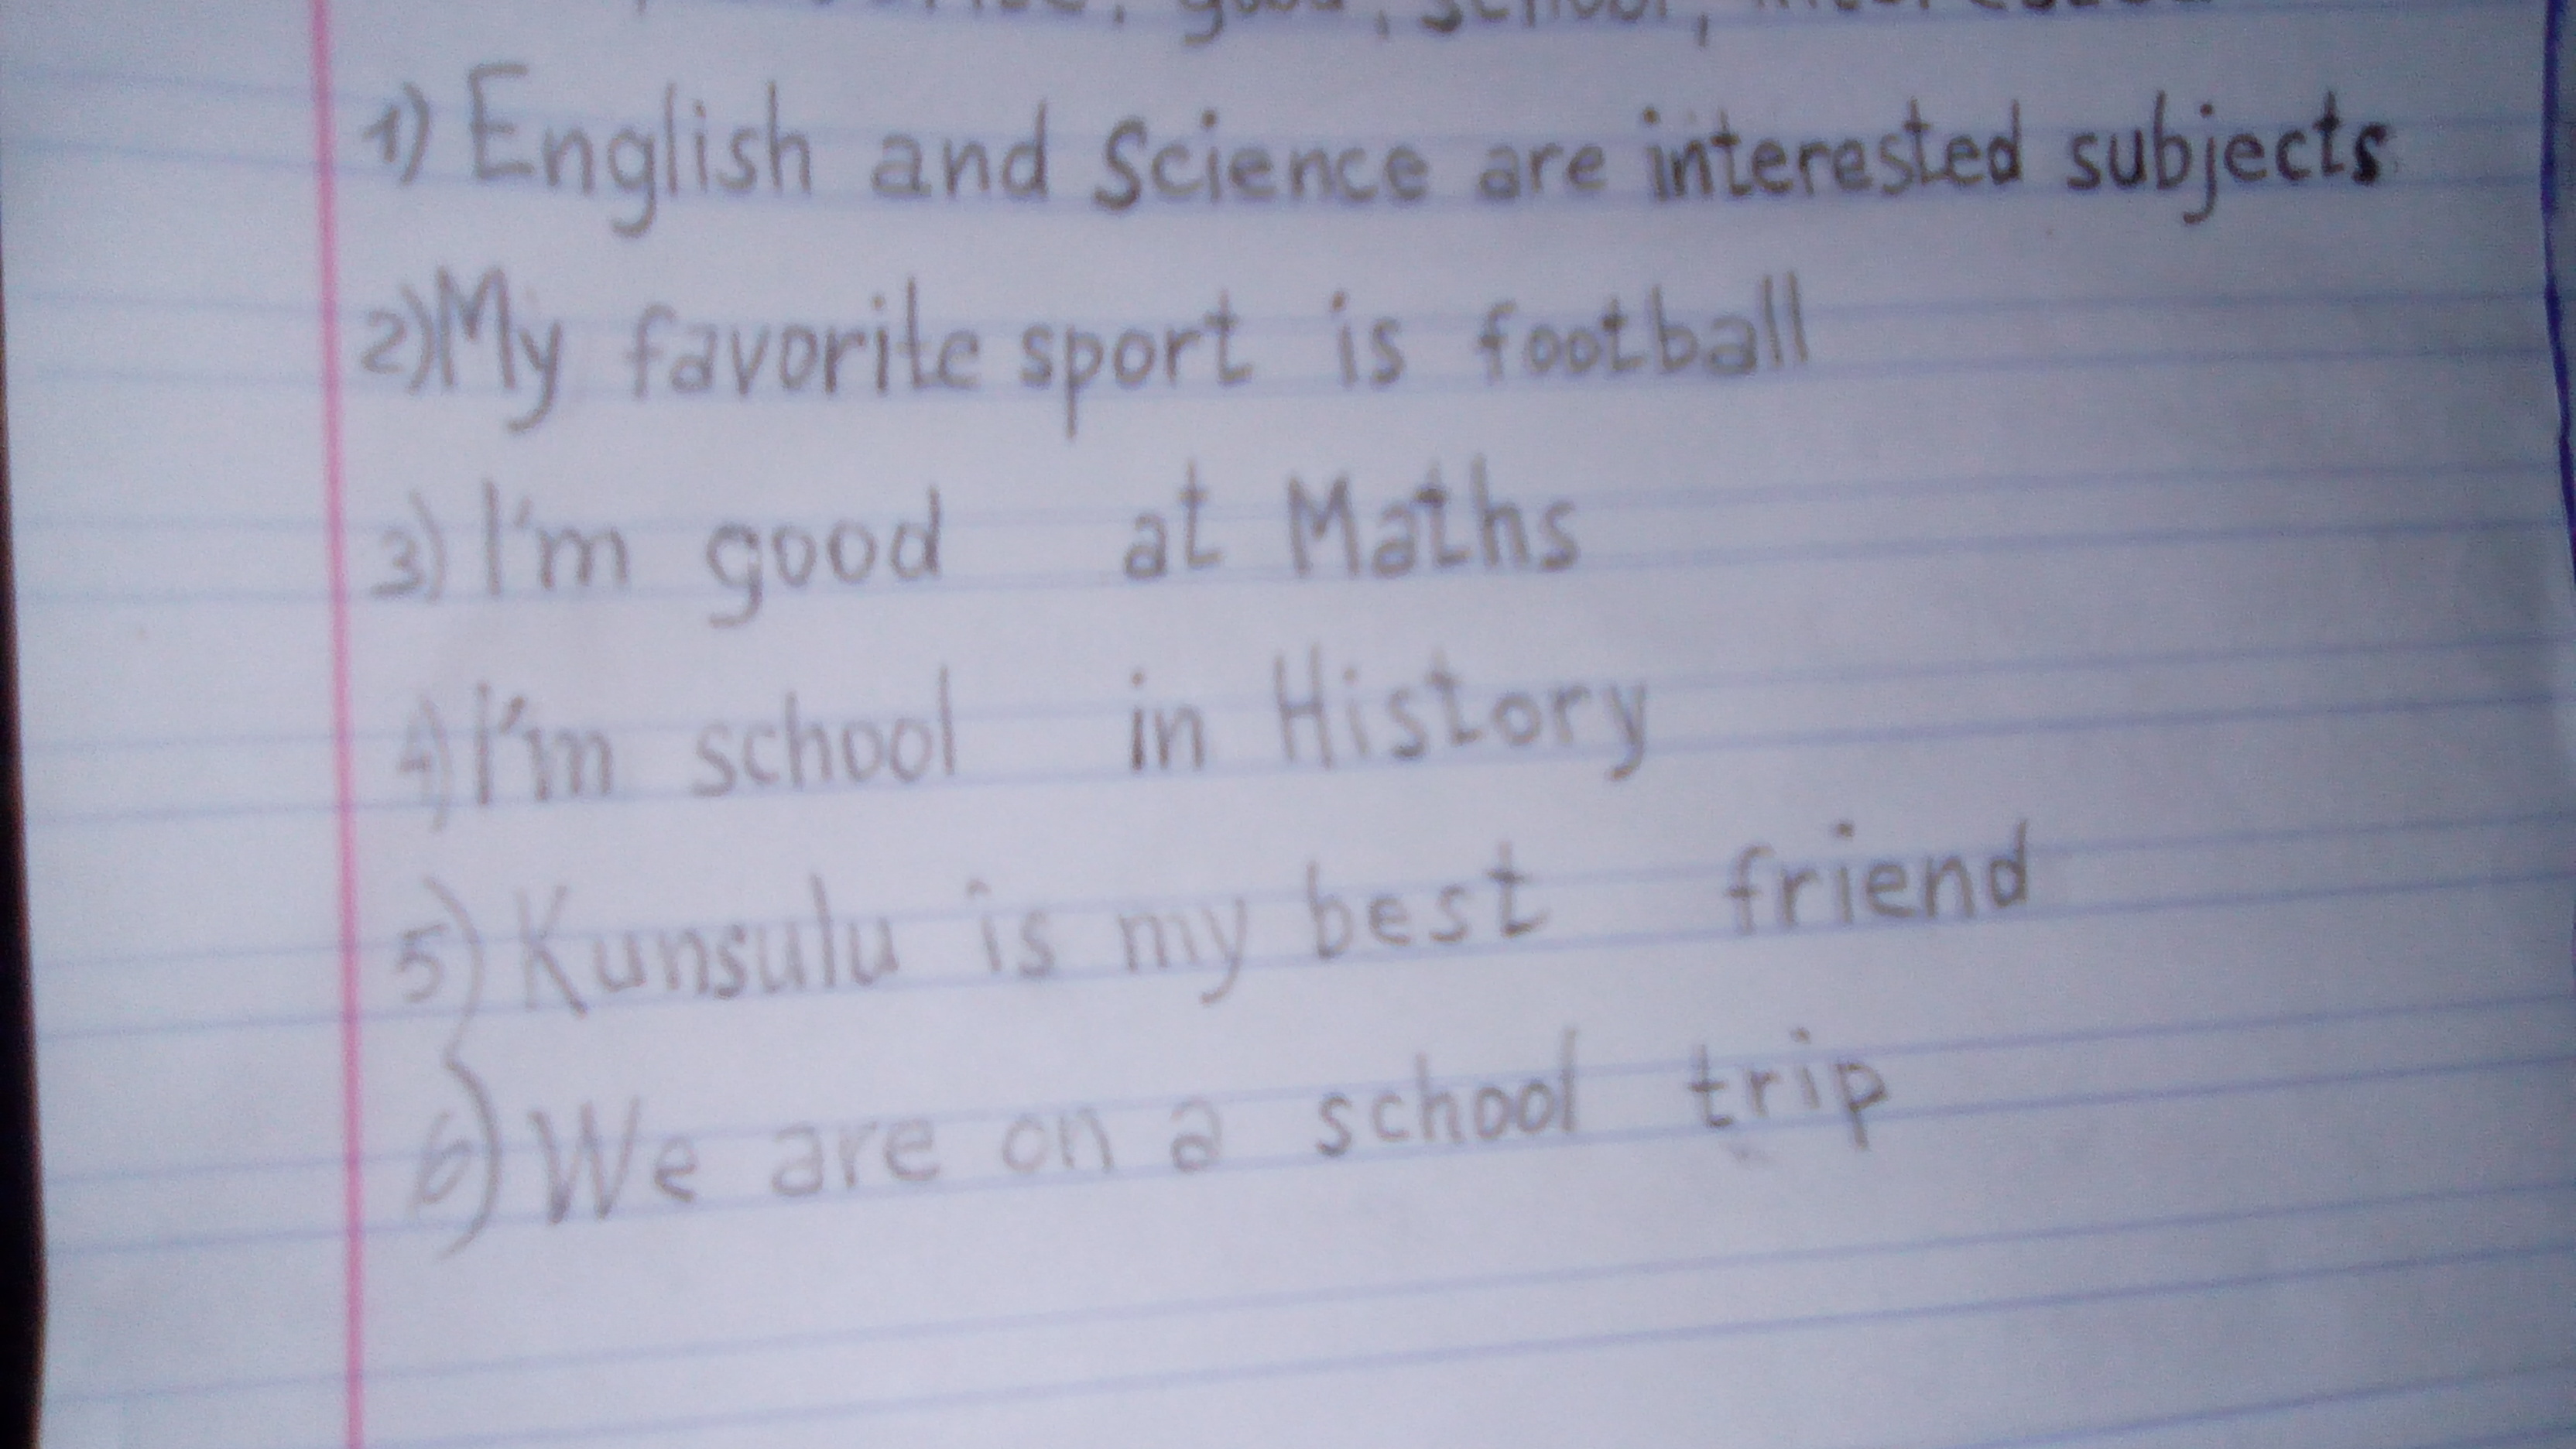 good, school,
1) English and Science are interested subjects
2) My favorite sport is football
3) I'm good at Maths
4) I'm school in History
5) Kunsulu is my best friend
6) We are on a school trip